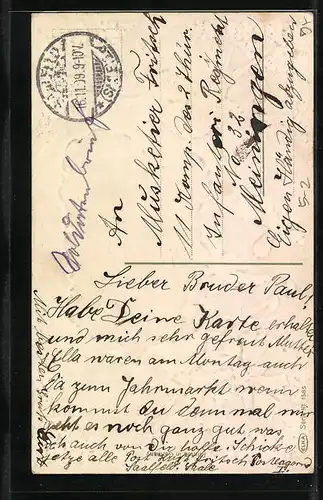 11.09.9-10V.
Soldatenbrief
An
Musketier Fritsch
11 Komp. des 2 Thür.
Infanteri Regiment
No 32
Meiningen
Eigen Händig abzugeben
Lieber Bruder Paul!
Habe Deine Karte erhalt
und mich sehr gefreut Mutter
Ella waren am Montag auch
da zum Jahrmarkt wenn
kommst du denn mal mir
geht es noch ganz gut was
ich auch von dir hoffe. Schicke
jetze alle
Saalfeld Saale
Mit
Serie